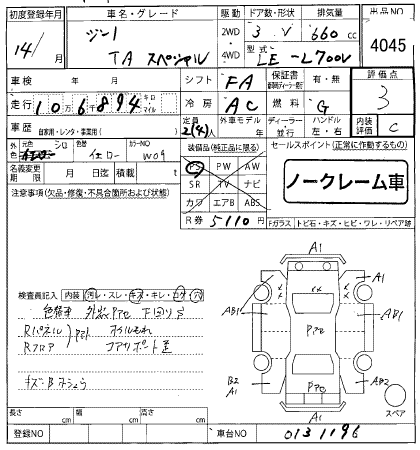 初度登録年月 車名・グレード 駆動 ドア数・形状 排気量 出品NO
14/ 月 ジーノ 2WD 4WD 3 V 660 cc 4045
TA スペシャル 型式 LE-L700V
車検 年 月 シフト FA 保証書 有・無 評価点
走行 10万6千894 キロ マイル 冷房 AC 燃料 G 3
車歴 自家用・レンタ・事業用( ) 定員 2(4)人 外車モデル 年 ディーラー 並行 ハンドル 左・右 内装評価 C
外色 元色 シロ 色替 イエロー カラーNO W09 装備品(純正品に限る) セールスポイント(正常に作動するもの)
名義変更期限 月 日迄 積載 t PS PW AW
ノークレーム車
注意事項(欠品・修復・不具合箇所および状態) SR TV ナビ
カワ エアB ABS
R券 5110円 Fガラス トビ石・キズ・ヒビ・ワレ・リペア跡
検査員記入 内装 汚レ・スレ・キズ・キレ・コゲ・穴
色替車 外装Pアセ 下回りS
Rパネル オイルもれ
Rフロア コアサポート歪
キズ・B多しょう
A1
A1
AB1 Pアセ AB1
B2 A1 Pアセ AB2
A1 スペア
長さ cm 幅 cm 高さ cm
登録NO 車台NO 0131196